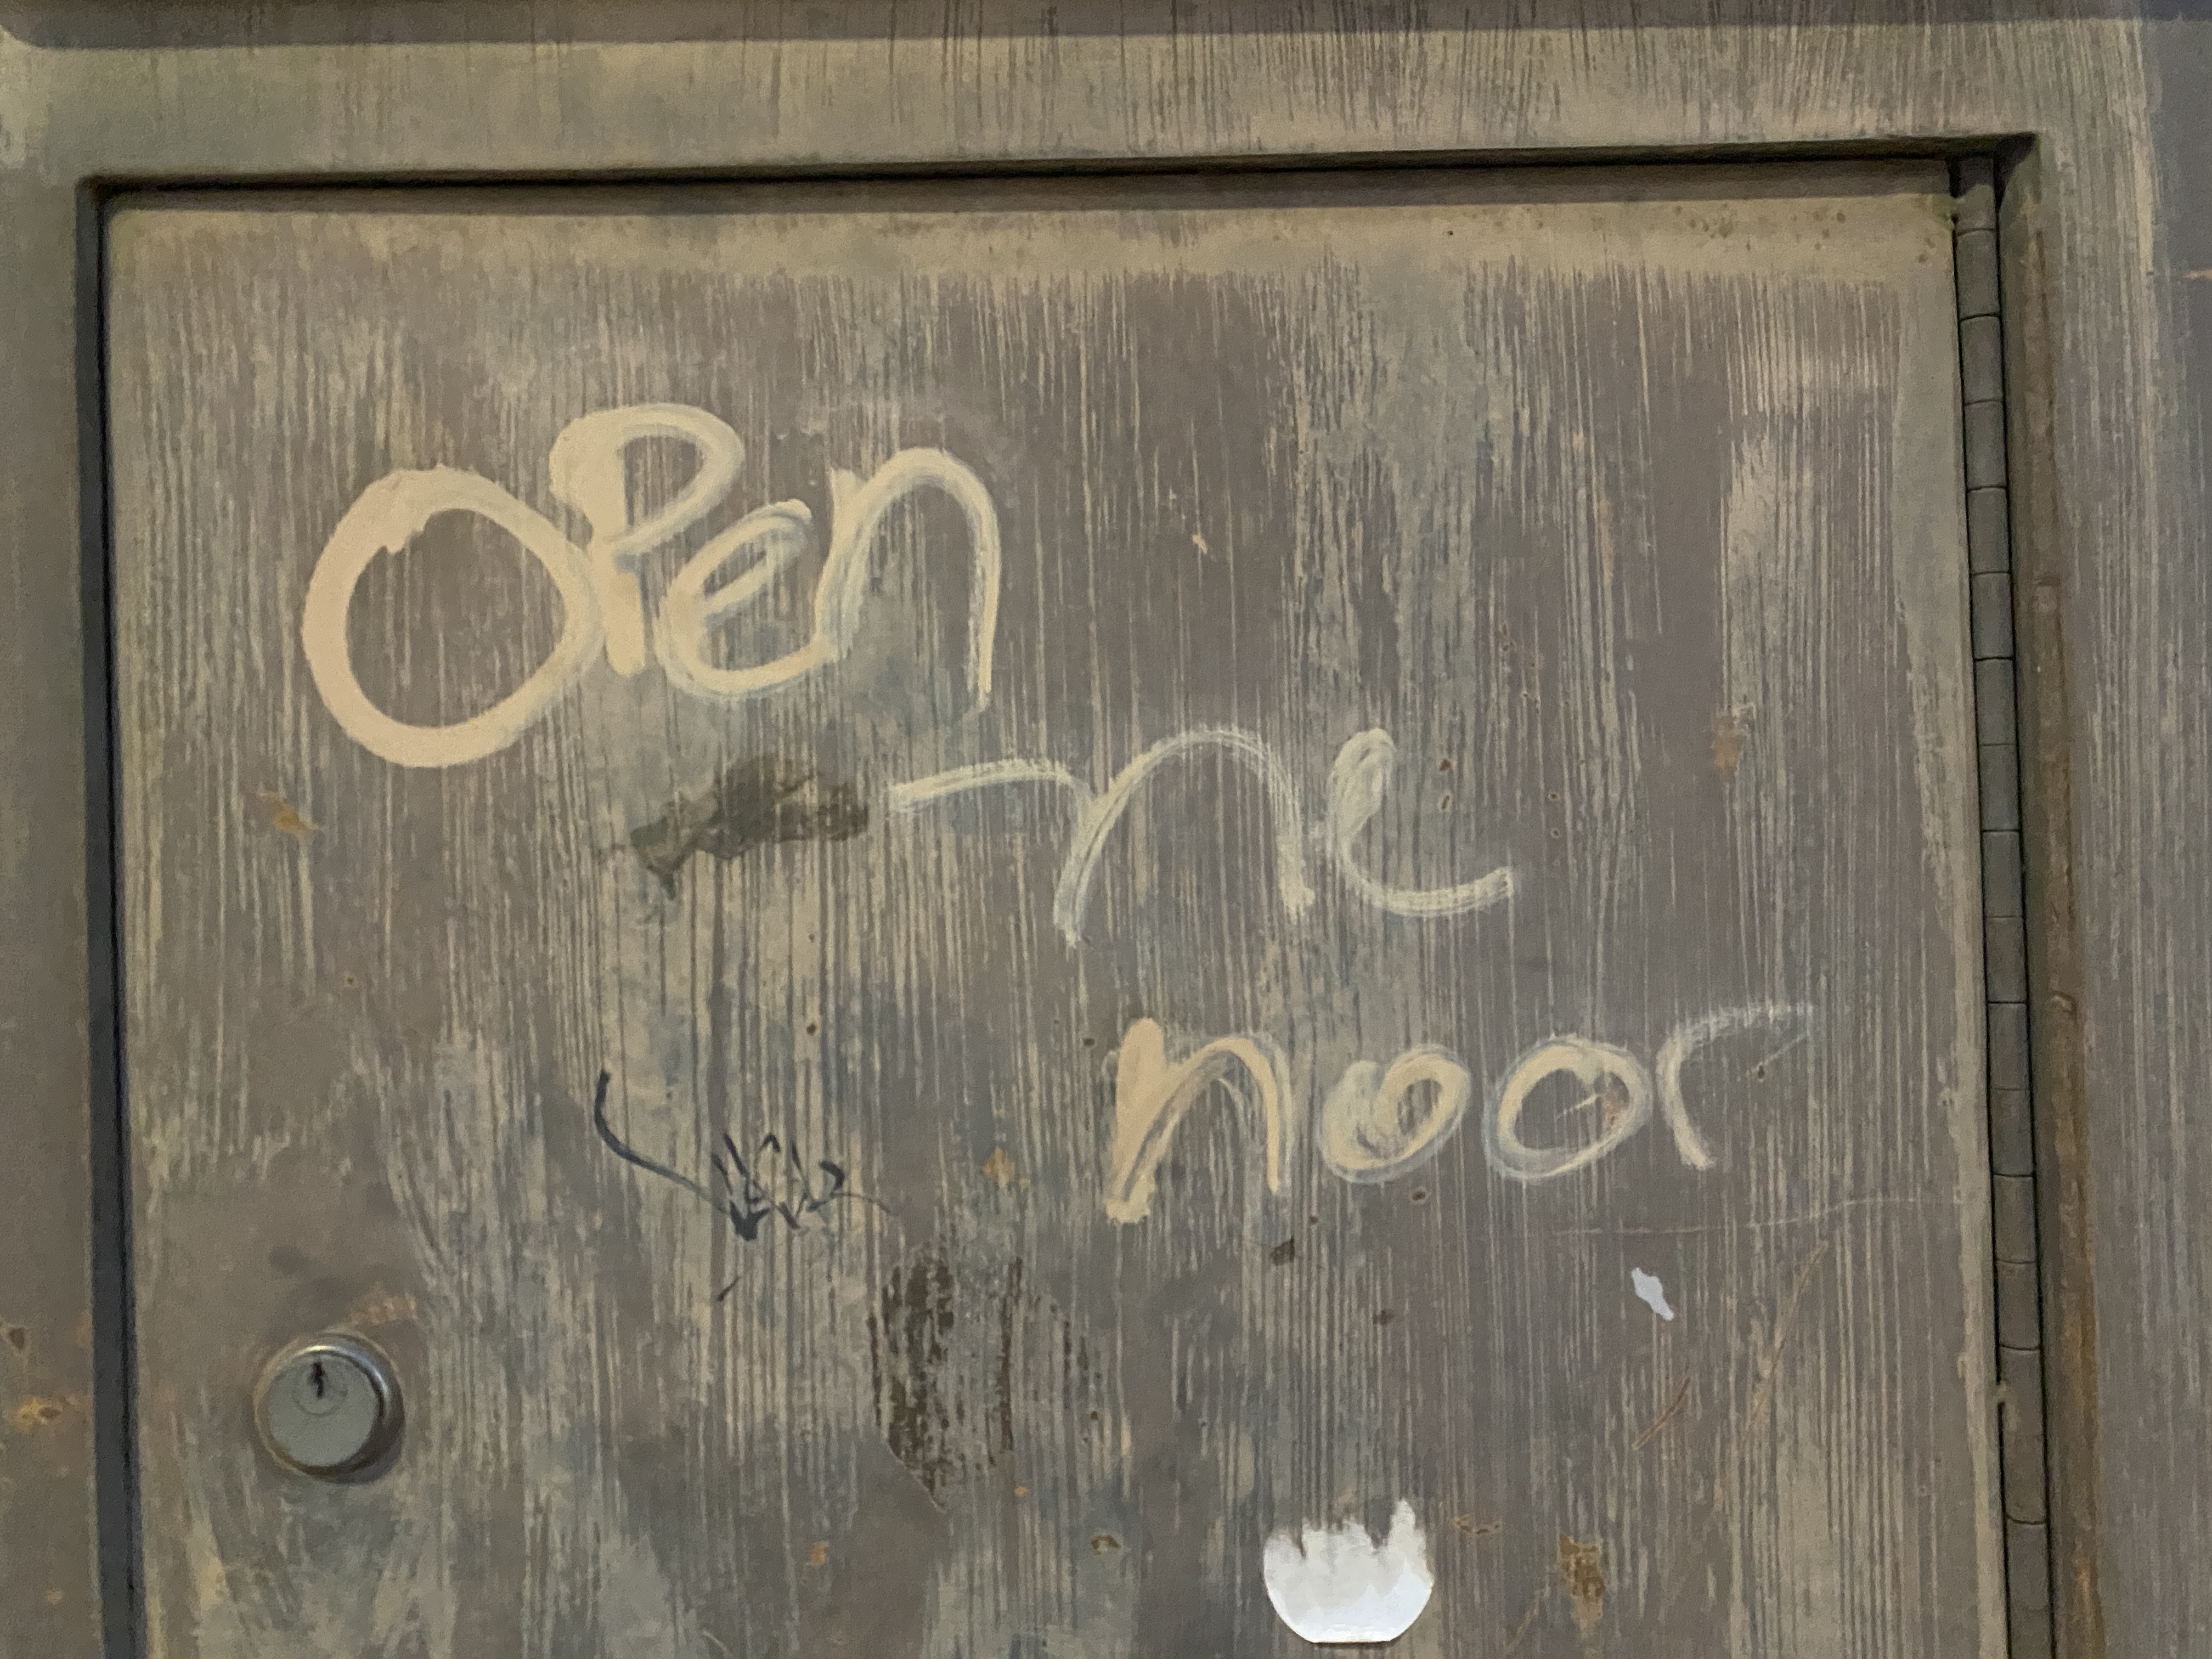 OPen
The
noor